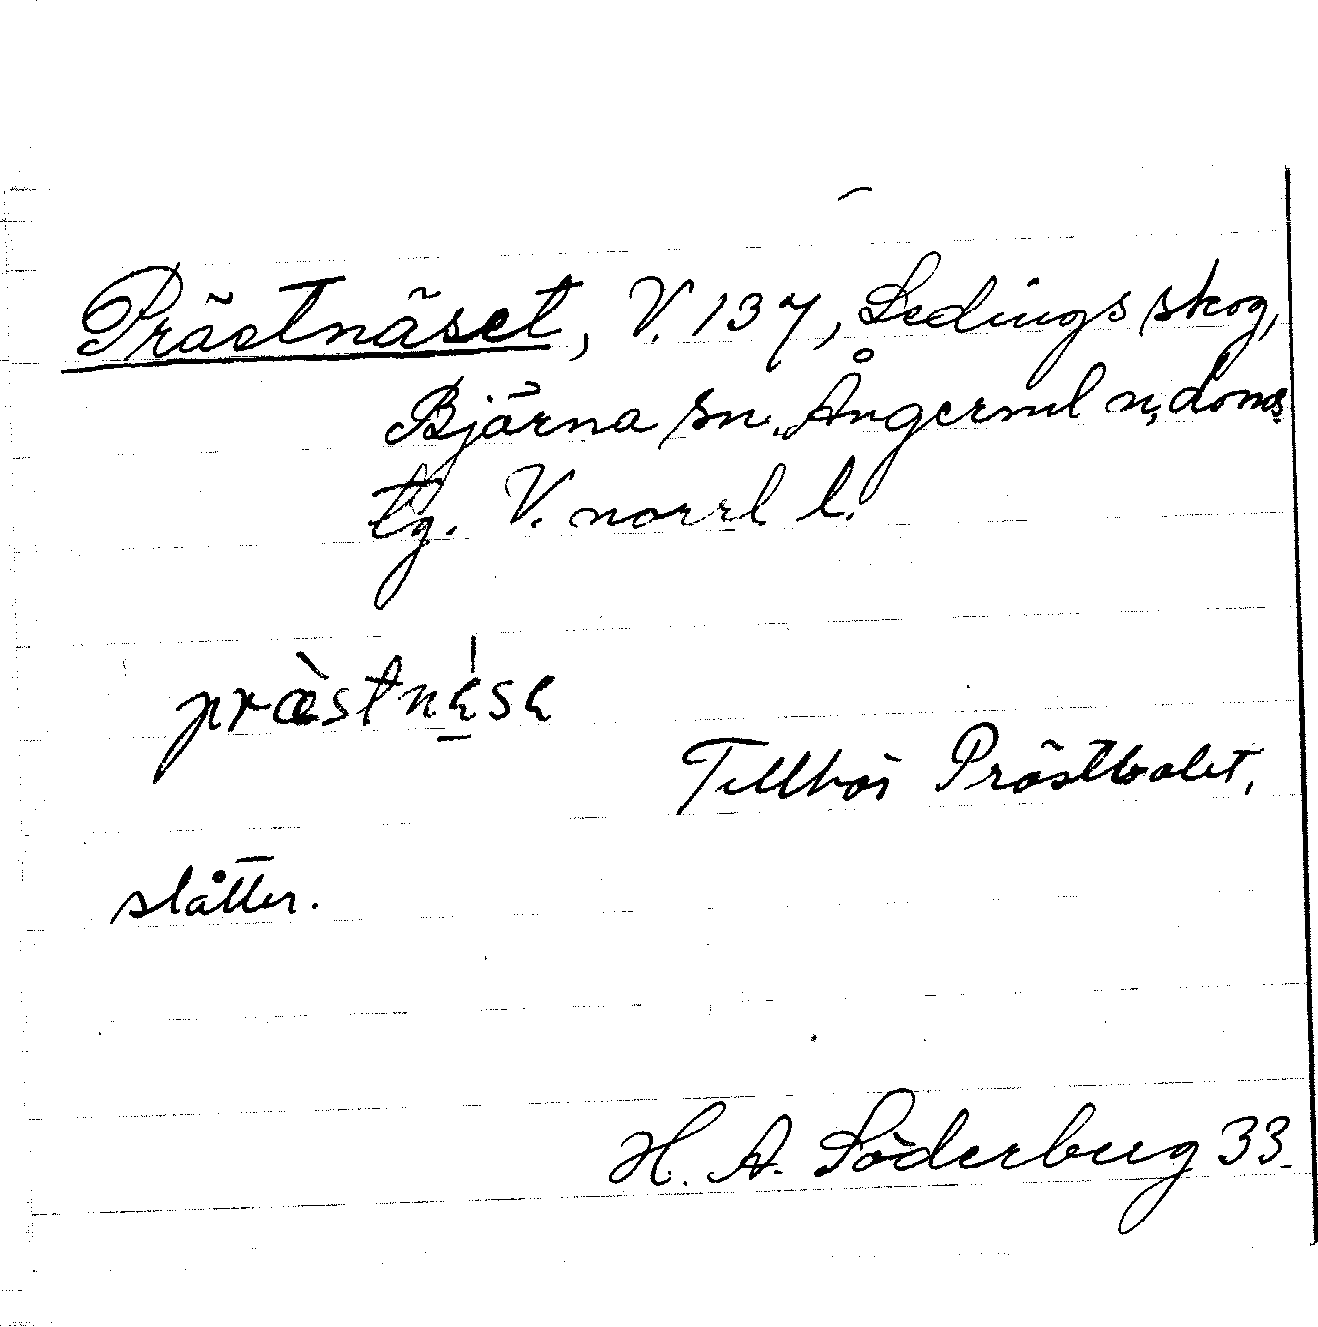 Prästnäset, V. 137, Ledingsskog,
Bjärna sn. Ångerml n, doms
tg. V. norrl l.
Tillhör Prästbolet,
slåtter.
H. A. Söderberg 33.